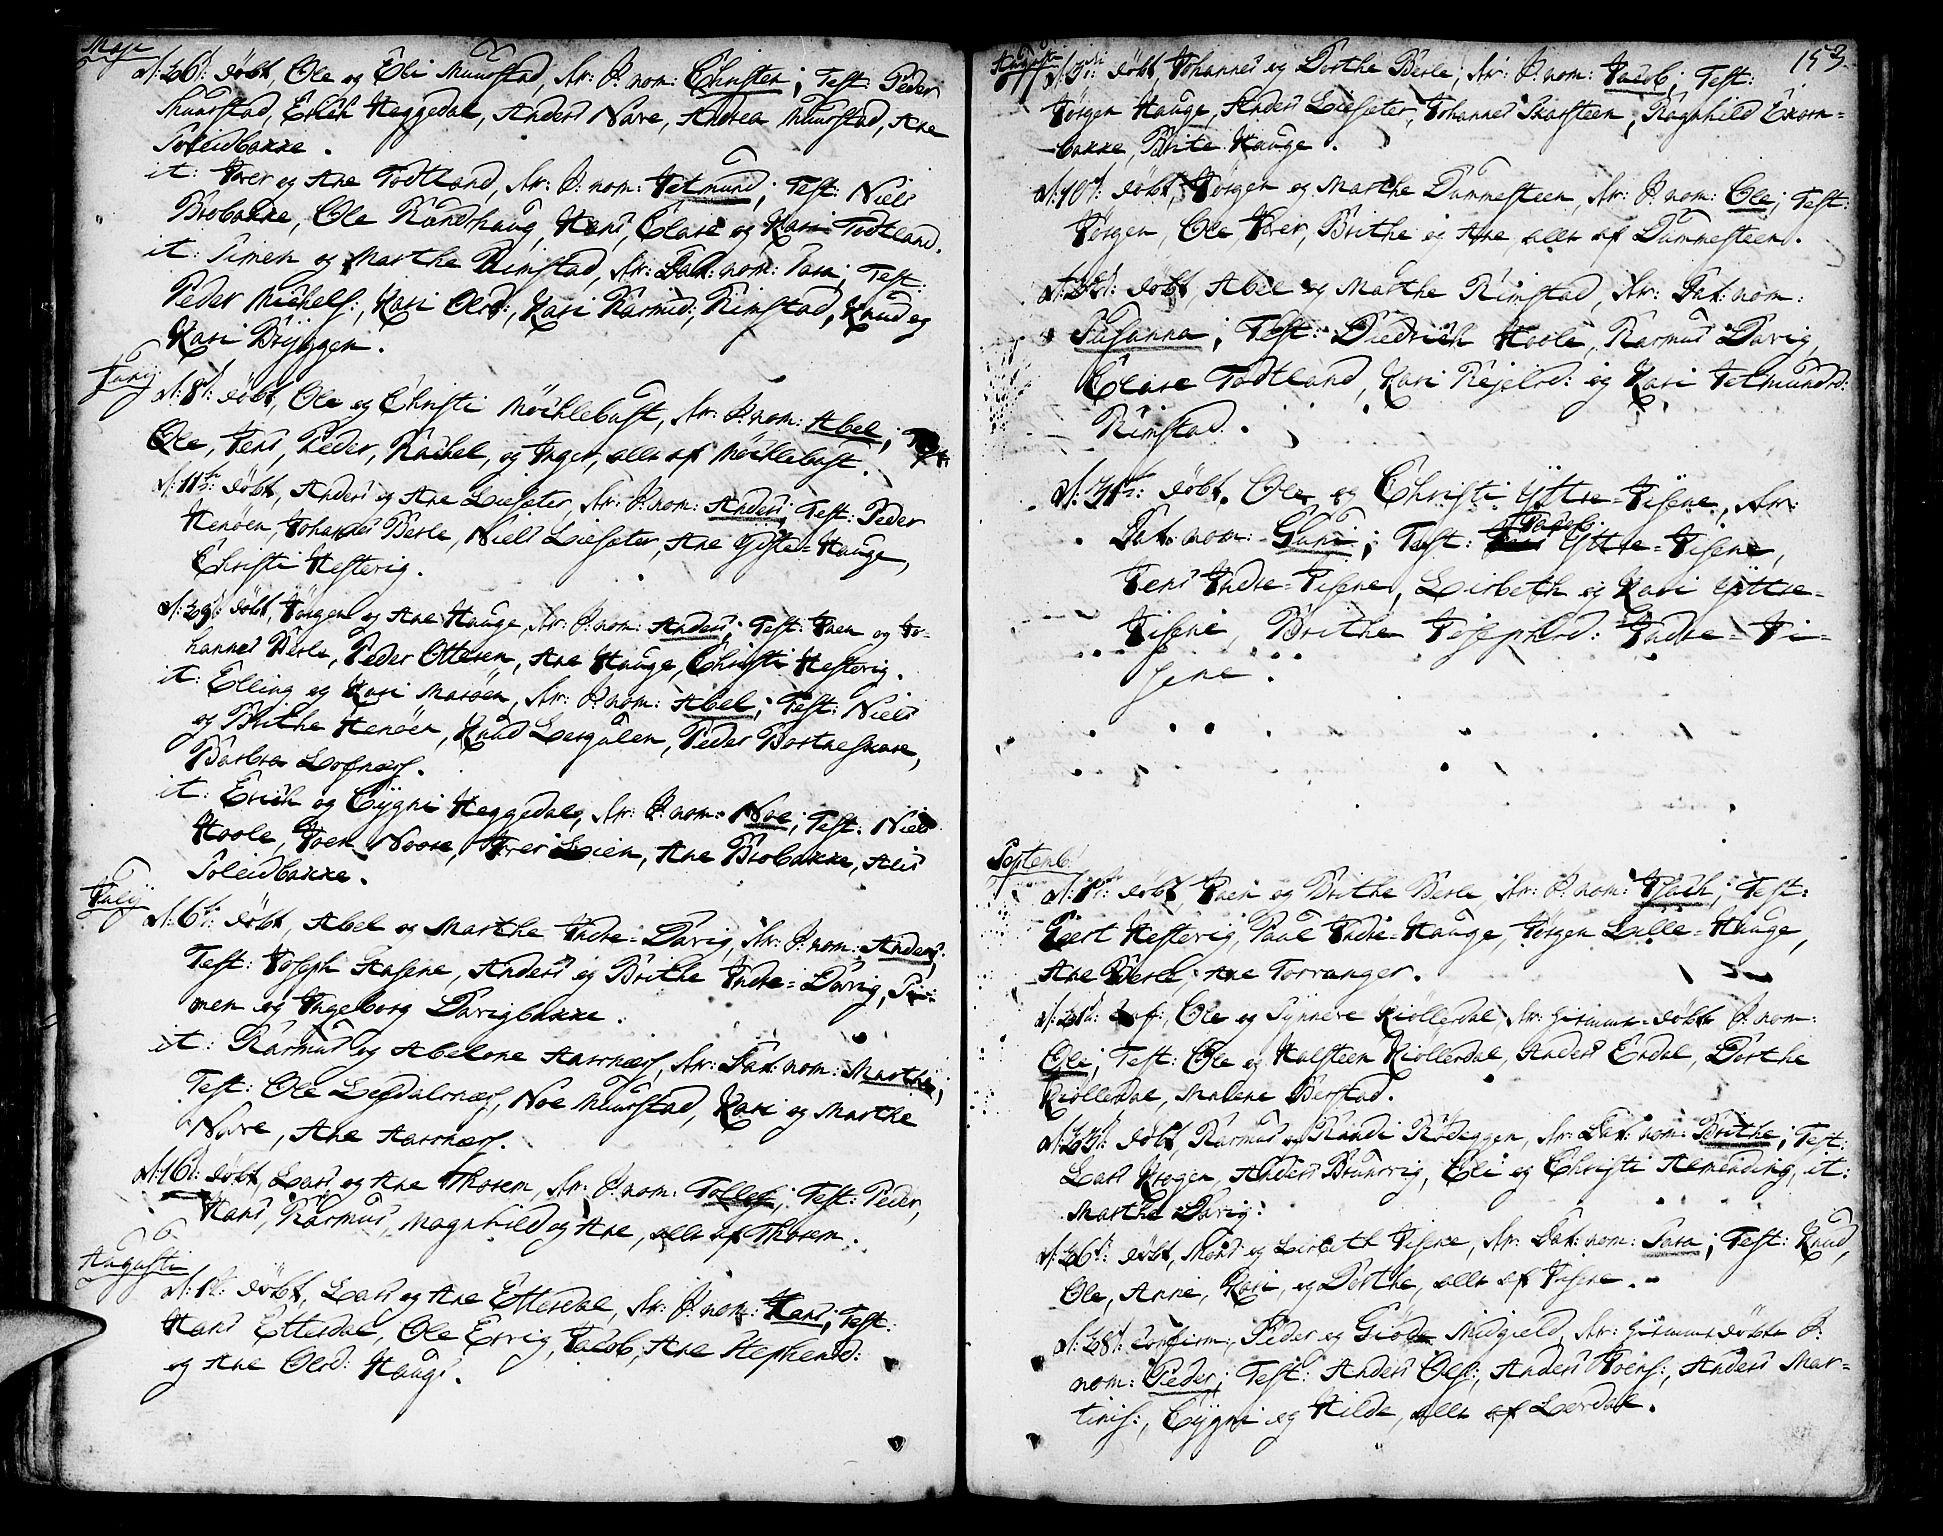 Maji
d: 26t: döbt, Ole og Eli Muurstad, der: S: nom: Christen; Test: Peder
Muurstad, Erich Heggedal, Anders Nave, Andrea Muurstad, Ane
Soleidbakke.
it: Iver og Ane Todtland, der: S: nom: Jetmund; Test: Niels
Brobakke, Ole Rundhaug, Hans, Clare og Kari Todtland.
it: Simen og Marthe Rimstad, der: Dat: nom: Sara; Test:
Peder Michels:, Kari Olsd:, Kari Rasmusd:, Rimstad, Knud og
Kari Bryggen.
Junij
d: 8t: döbt, Ole og Christi Möcklebust, der: S: nom: Abel; Test:
Ole, Jens, Peder, Rachel, og Inger, alle af Möcklebust.
d: 11te: döbt, Anders og Ane Liesæter, der: S: nom: Anders; Test: Peder
Henöen, Johannes Berle, Niels Liesæter, Ane Hauge,
Christi Hestevig.
d: 29t: döbt, Jörgen og Ane Hauge, der: S: nom: Anders; Test: Joen og Jo-
hannes Berle, Peder Ottesen, Ane Hauge, Christi Hestevig.
it: Elling og Kari Maröen, der: S: nom: Abel; Test: Niels
og Brithe Henöen, Knud Lesgulen, Peder Bortneskare,
Barbra Lofnæss.
it: Erich og Cygni Heggedal, der: S: nom: Noe; Test: Niels
Hoole, Joen Noore, Iver Lien, Ane Brobakke, Alis
Soleidbakke.
Julij
d: 6t: döbt, Abel og Marthe Indre-Davig, der: S: nom: Anders;
Test: Joseph Aasene, Anders og Brithe Indre-Davig, Si-
men og Ingeborg Davigbakke.
it: Rasmus og Abelone Aasnæss, der: Dat: nom: Marthe;
Test: Ole Legdalsnæs, Noe Muurstad, Kari og Marthe
Nave, Ane Aasnæss.
d: 16t: döbt, Lars og Ane Thorem, der: S: nom: Tollef; Test: Peder,
Hans, Rasmus, Magnhild og Ane, alle af Thorem.
Augusti
d: 1t: döbt, Lars og Ane Ettesdal, der: S: nom: Hans; Test:
Hans Ettesdal, Ole Ervig, Jacob, Ane Stephensd:
og Ane Olsd: Hauge.
153.
Augusti
d: 3die: döbt, Johannes og Dorthe Berle, der: S: nom: Jacob; Test:
Jörgen Hauge, Anders Liesæter, Johannes Skarsteen, Ragnhild
bakke, Brite Hauge.
d: 10t: döbt, Jörgen og Marthe Dummesteen, der: S: nom: Ole; Test:
Jörgen, Ole, Iver, Brithe og Ane, alle af Dummesteen.
döbt, Abel og Marthe Rimstad, der: Dat: nom:
Susanna; Test: Diedrich Hoole, Rasmus Davig,
Clare Todtland, Kari Kjelsd: og Kari Jetmundsd:
Rimstad.
d: 31te: döbt, Ole og Christi Yttre-Jisene, der:
Dat: nom: Guri; Test: Jacob Yttre-Jisene,
Jens Indre-Jisene, Lisbeth og Kari Yttre-
Jisene, Brithe Josephsd: Indre-Ji-
sene.
Septemb:
d: 1ste döbt, Joen og Brithe Berle, der: S: nom: Isach; Test:
Giert Hestevig, Paul Indre-Hauge, Jörgen Lille-Hauge,
Ane Berle, Ane Torvanger.
d: 21d: Conf:, Ole og Synneve Kiöllerdal, der: hiemmedöbte S: nom:
Ole; Test: Ole og Halsteen Kiöllerdal, Anders Endal, Dorthe
Kiöllerdal, Malene Berstad.
d: 23t: döbt, Rasmus og Randi Rödeggen, der: Dat: nom: Brithe; Test:
Lars Krogen, Anders Bruurvig, Eli og Christi Almending, it:
Marthe Davig.
d: 26t: döbt, Mons og Lisbeth Jisene, der: Dat: nom: Sara; Test: Knud,
Ole, Anne, Kari, og Dorthe, alle af Jisene.
d: 28t: Confirm:, Peder og Midgield, der: hiemmedöbte S:
nom: Peder; Test: Anders Ols:, Anders Joens:, Anders Mar-
tins:, Cygni og Hilde, alle af Lerdal.